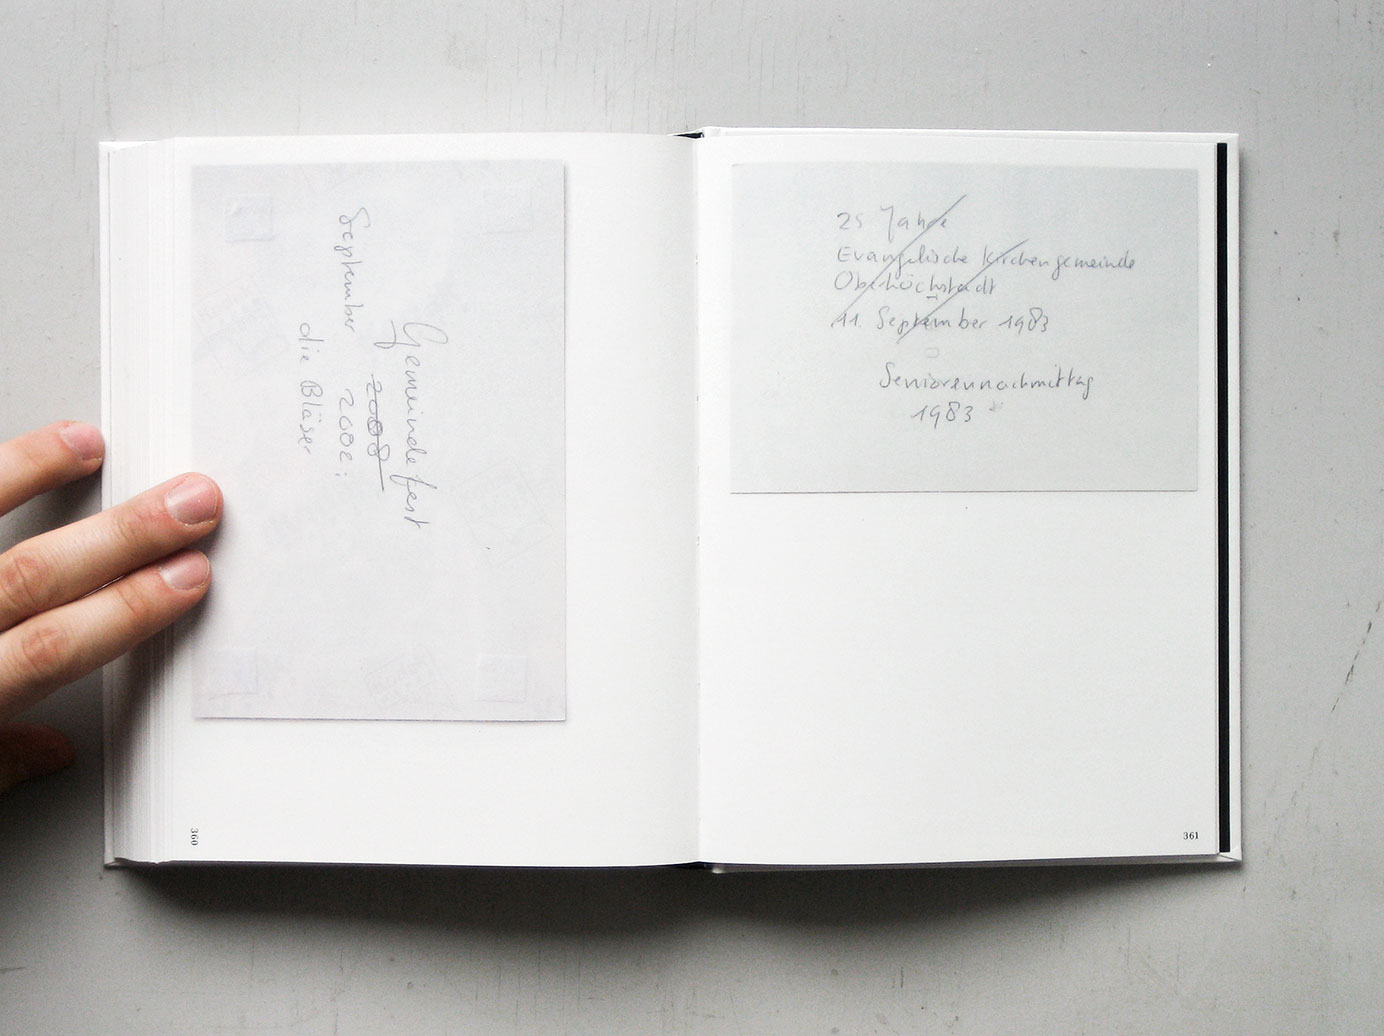 Gemeindefest
2008
September 2002:
die Bläser
360
25 Jahre
Evangelische Kirchengemeinde
Oberhöchstadt
11. September 1983
Seniorennachmittag
1983
361